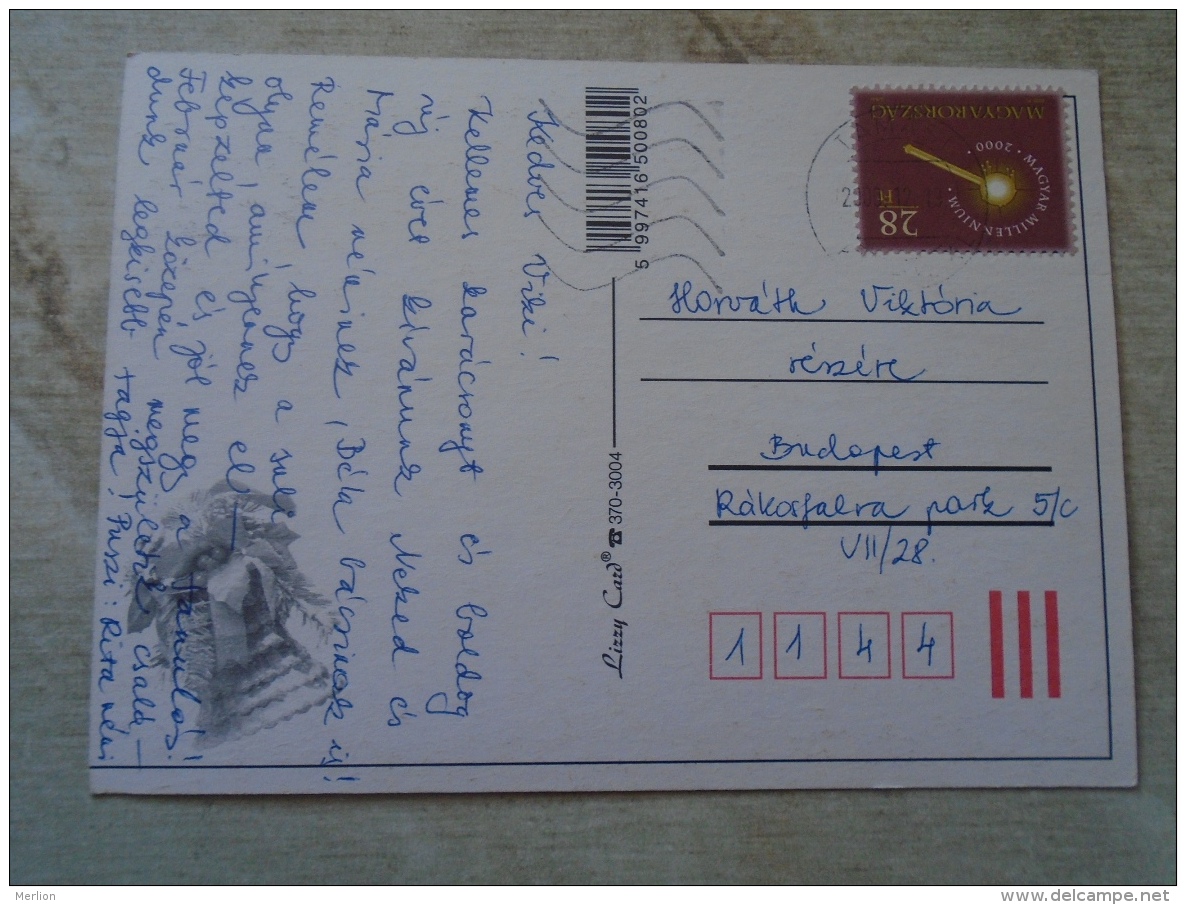 Kedves Viki!
Kellemes karácsonyt és boldog
új évet kívánunk Neked és
Mária néninek, Béla bácsinak is!
Remélem hogy a suli
olyan amilyennek el-
képzelted és jól megy a tanulás!
Február közepén megszületik csalá-
dunk legkisebb tagja! Puszi: Rita néni
5 997416 500802
Lizzy Card® ☎ 370-3004
MAGYARORSZÁG
MAGYAR MILLENNIUM • 2000 •
28 Ft
Horváth Viktória
részére
Budapest
Rákosfalva park 5/c
VII/28.
1 1 4 4
Merlion
www.delcampe.net